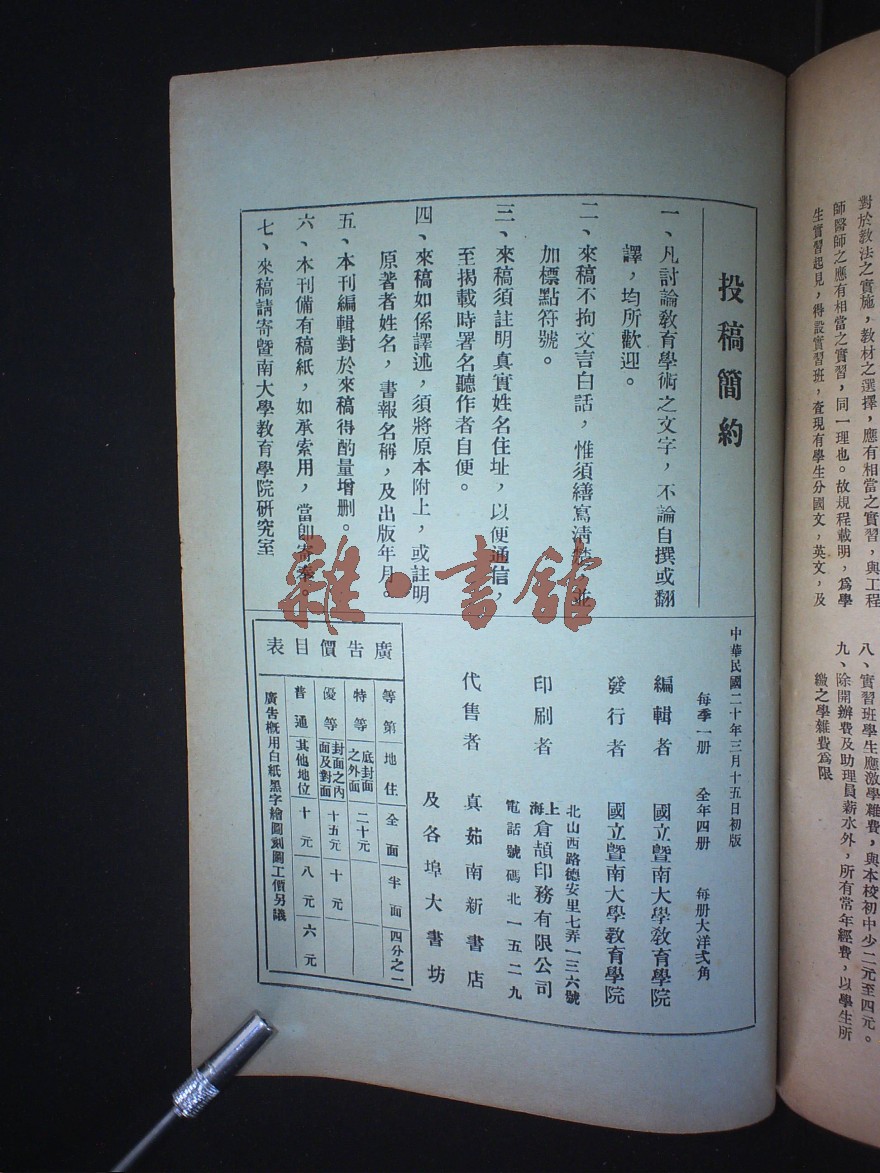 對於教法之實施，教材之選擇，應有相當之實習，與工程
師醫師之應有相當之實習，同一理也。故規程載明，爲學
生實習起見，得設實習班，查現有學生分國文，英文，及
八、實習班學生應繳學雜費，與本校初中少二元至四元。
九、除開辦費及助理員薪水外，所有常年經費，以學生所
繳之學雜費爲限
投稿簡約
一、凡討論教育學術之文字，不論自撰或翻
譯，均所歡迎。
二、來稿不拘文言白話，惟須繕寫清楚，並
加標點符號。
三、來稿須註明真實姓名住址，以便通信，
至揭載時署名聽作者自便。
四、來稿如係譯述，須將原本附上，或註明
原著者姓名，書報名稱，及出版年月。
五、本刊編輯對於來稿得酌量增删。
六、本刊備有稿紙，如承索用，當卽寄奉。
七、來稿請寄暨南大學教育學院研究室
雜·書館
中華民國二十年三月十五日初版
每季一册 全年四册 每册大洋弍角
編輯者 國立暨南大學教育學院
發行者 國立暨南大學教育學院
北山西路德安里七弄一三六號
印刷者 上海倉頡印務有限公司
電話號碼北一五二九
代售者 真茹南新書店
及各埠大書坊
廣告價目表
等第 地住 全面 半面 四分之一
特等 底封面之外面 二十元
優等 封面之內面及對面 十五元 十元
普通 其他地位 十元 八元 六元
廣告概用白紙黑字繪圖刻圖工價另議